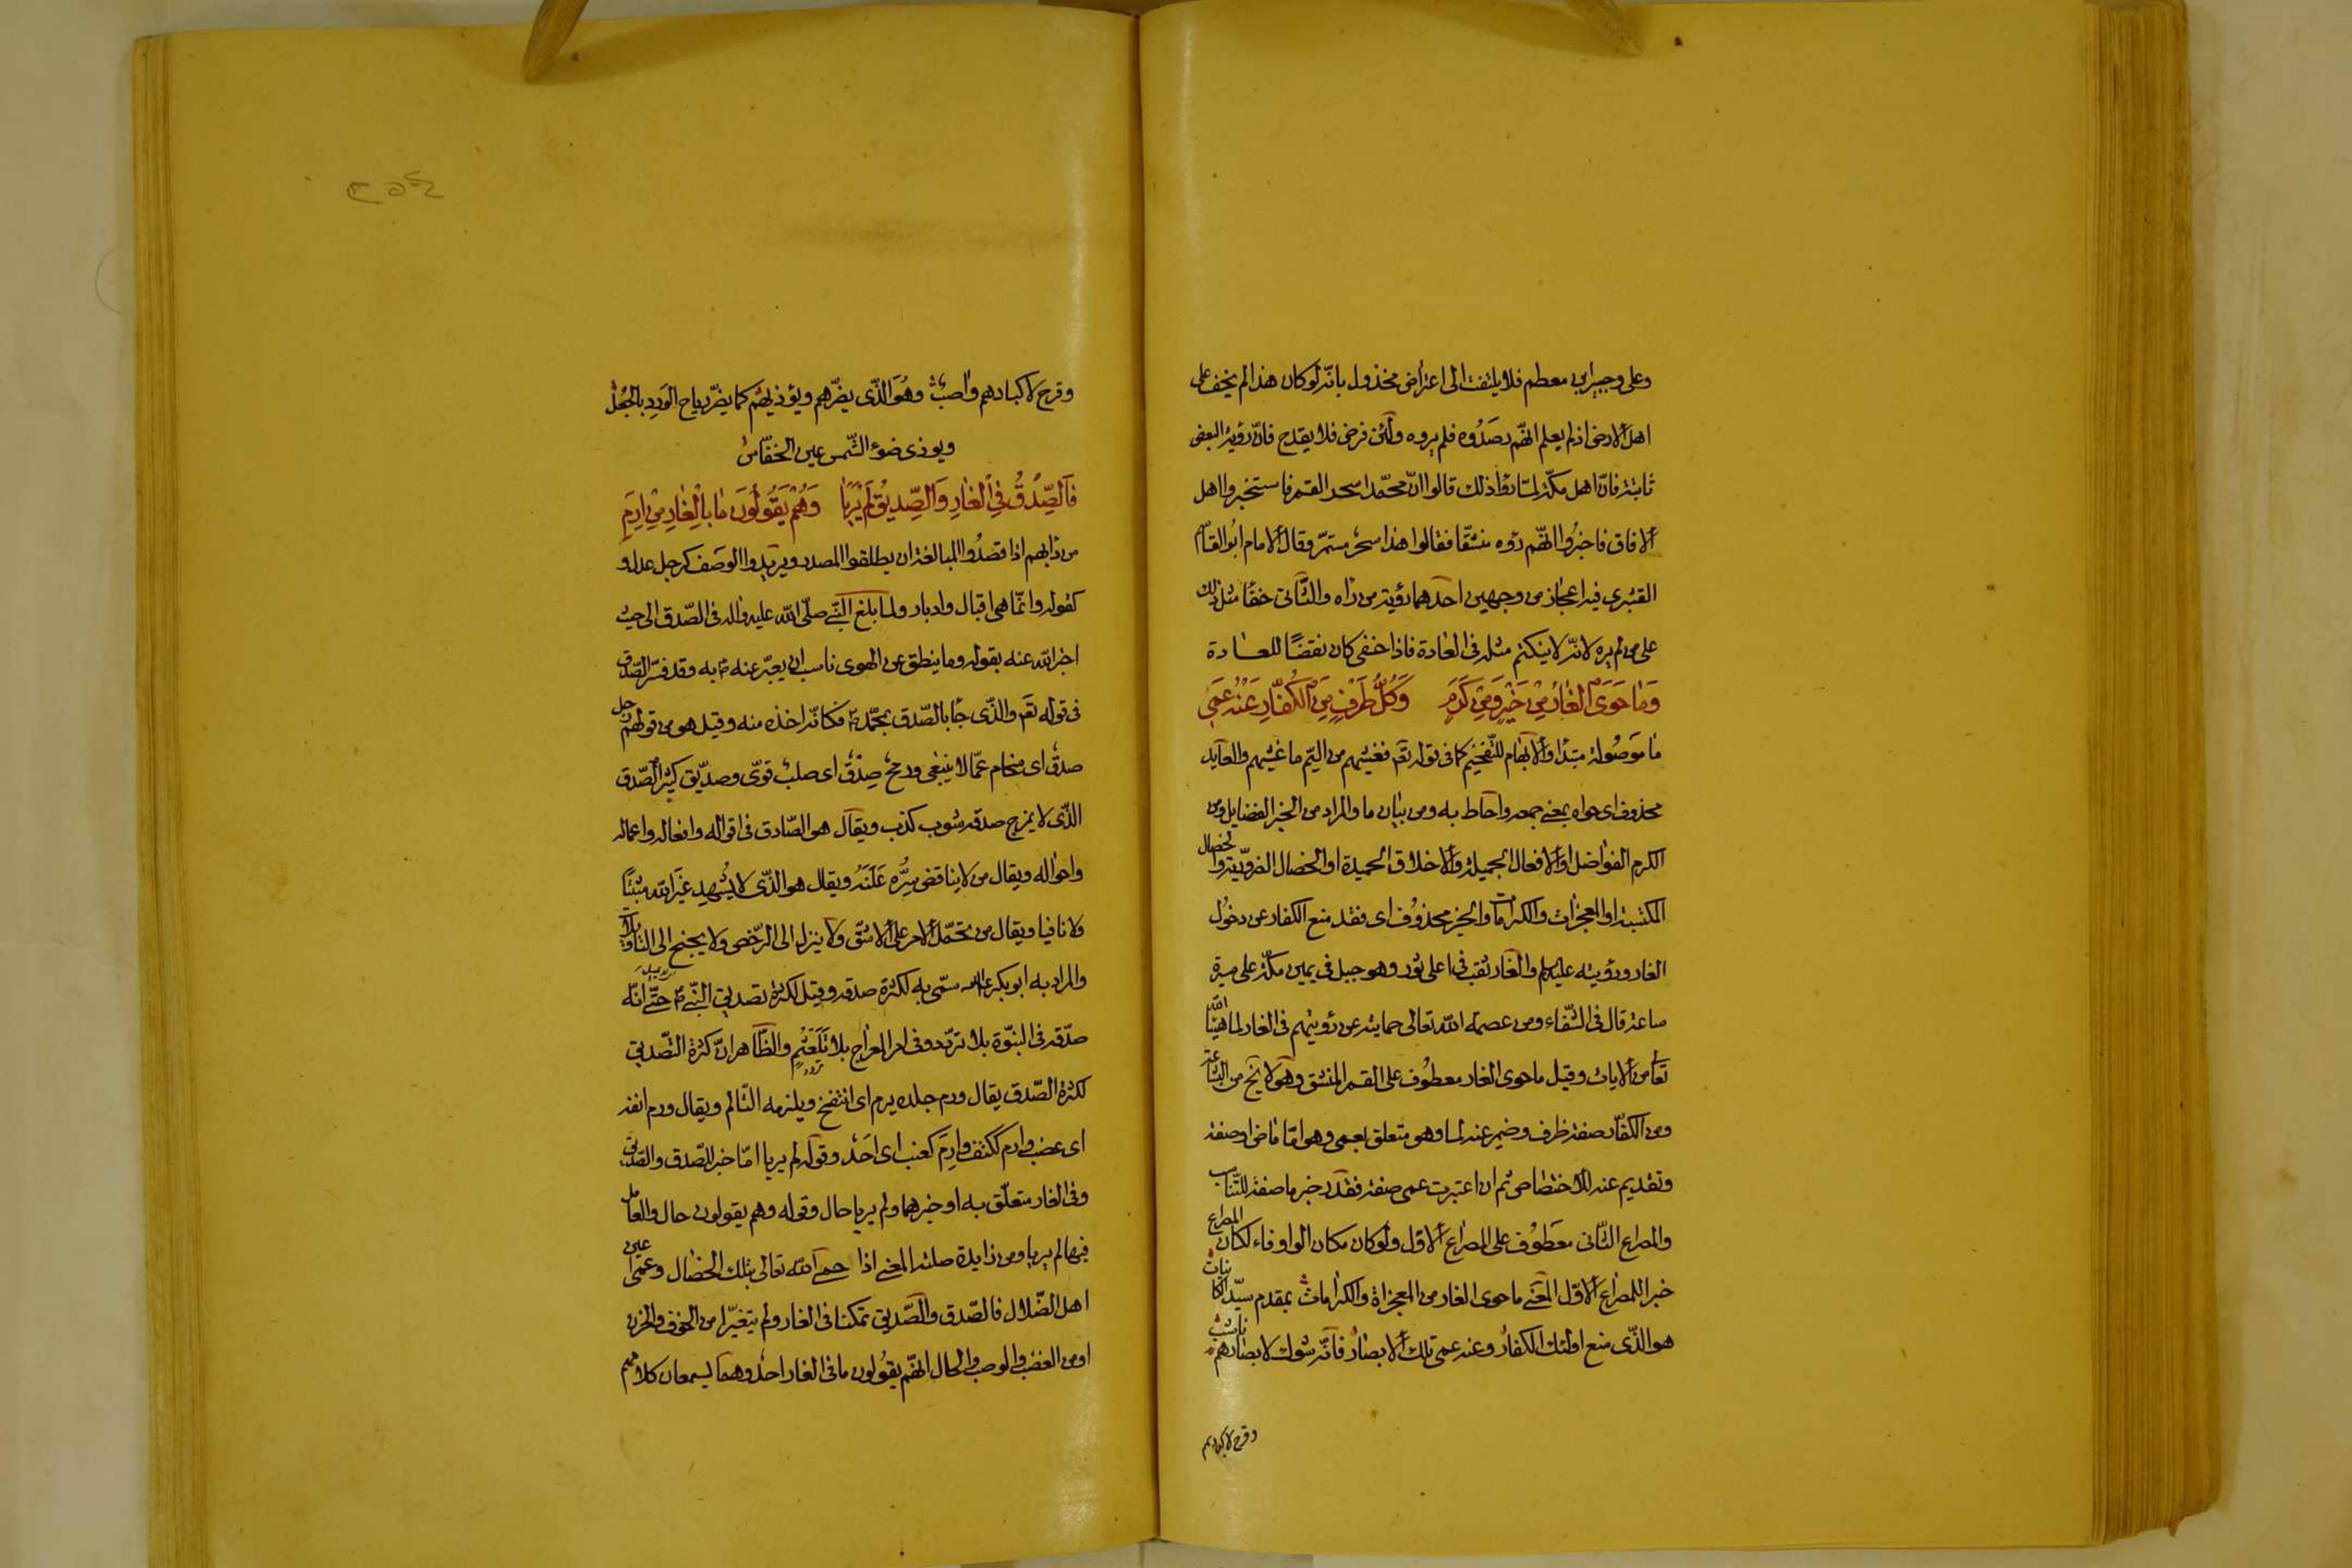 وعلى وجبير بن مطعم فلا يلتفت الى اعتراض مخذول بانه لو كان هذا لم يخف على
اهل الارض اذ لم يعلم انهم رصدوه فلم يروه ولئن فرض فلا يقدح فان رؤية البعض
ثابتة فان اهل مكة لما رؤا ذلك قالوا ان محمدا سحر القمر فاستخبروا اهل
الافاق فاخبروا انهم رؤه منشقا فقالوا هذا سحر مستمر وقال الامام ابو القاسم
القشيرى فيه اعجاز من وجهين احدهما رؤية من راه والثانى خفا مثل ذلك
على من لم يره لانه لا ينكتم مثله فى العادة فاذا خفى كان نقضا للعادة
وَمَا حَوَى الْغَارُ مِنْ خَيْرٍ وَمِنْ كَرَمٍ وَكُلُّ طَرْفٍ مِنَ الْكُفَّارِ عَنْهُ عَمِى
ما موصولة مبتدا والابهام للتفخيم كما فى قوله تعم فغشيهم من اليم ما غشيهم والعايد
محذوف اى حواه بمعنى جمعه واحاط به ومن بيان ما والمراد من الخير الفضايل ومن
الكرم الفواضل او الافعال الجميلة والاخلاق الحميدة او الخصال الضروية والخصال
المكتسبة او المعجزات والكرامات والخبر محذوف اى فقد منع الكفار عن دخول
الغار ورؤيته عليه السلم والغار نقب فى اعلى ثور وهو جبل فى يمين مكة على مسيرة
ساعة قال فى الشفاء ومن عصمة الله تعالى حمايته عن رؤيتهم فى الغار لما هيئ الله
تعا من الايات وقيل ما حوى الغار معطوف على القمر المنشق وهو لا يخ من البشاعة
ومن الكفار صفة طرف وضمير عنه لما وهو متعلق بعمى وهو اما ماض او صفة
وتقديم عنه للاختصاص ثم ان اعتبرت عمى صفة فقدر خبر ما صفة للتناسب
والمصراع الثانى معطوف على المصراع الاول ولو كان مكان الواو فاء لكان المصراع
خبرا للمصراع الاول المعنى ما حوى الغار من المعجزاة والكرامات بمقدم سيد الكائنات
هو الذى منع اولئك الكفار وعنه عمى تلك الابصار فانه شوك لابصارهم ناشب
وقرح لاكبادهم
وقرح لاكبادهم واصب وهو الذى يضرهم ويؤذيهم كما يضر رياح الورد بالجعل
ويوذى ضوء الشمس عين الخفاش
فَالصِّدْقُ فِى الْغَارِ وَالصِّدِيقُ لَمْ يُرَيَا وَهُمْ يَقُولُونَ مَا بِالْغَارِ مِنْ اَرِمِ
من دابهم اذا قصدوا المبالغة ان يطلقوا المصدر ويريدوا الوصف كرجل عدل و
كقوله وانما هى اقبال وادبار ولما بلغ النبى صلى الله عليه واله فى الصدق الى حيث
اخبر الله عنه بقوله وما ينطق عن الهوى ناسب ان يعبر عنه به وقد فسر الصدق
فى قوله تعم والذى جا بالصدق بمحمد فكانه اخذه منه وقيل هو من قولهم رجل
صدق اى متحام عما لا ينبغى ورمح صدق اى صلب قوى وصديق كثير الصدق
الذى لا يمزج صدقه شوب كذب ويقال هو الصادق فى اقواله وافعاله واعماله
واحواله ويقال من لا يناقض سره علنه ويقال هو الذى لا يشهد غير الله مثبتا
ولا نافيا ويقال من تحمل الامر على الاشق ولا ينزل الى الرخص ولا يجنح الى التاويلات
والمراد به ابو بكر سمى به لكثرة صدقه وقيل لكثرة تصديق النبى حتى انه
صدقه فى النبوة بلا تردد وفى امر المعراج بلا تلعثم والظاهر ان كثرة التصديق
تردد
لكثرة الصدق يقال ورم جلده يرم اى انتفخ ويلزمه التالم ويقال ورم انفه
اى غضب وارم ككتف وارم كعنب اى احد وقوله لم يريا اما خبر للصدق والصديق
وفى الغار متعلق به او خبرهما ولم يريا حال وقوله وهم يقولون حال والعامل
فيها لم يريا ومن زايدة صلته المعنى اذا حمى الله تعالى بتلك الخصال وعمى اعين
اهل الضلال فالصدق والصديق تمكنا فى الغار ولم يتغيرا من الخوف والحزن
او من الغضب والوصب والحال انهم يقولون ما فى الغار احد وهما يسمعان كلامهم